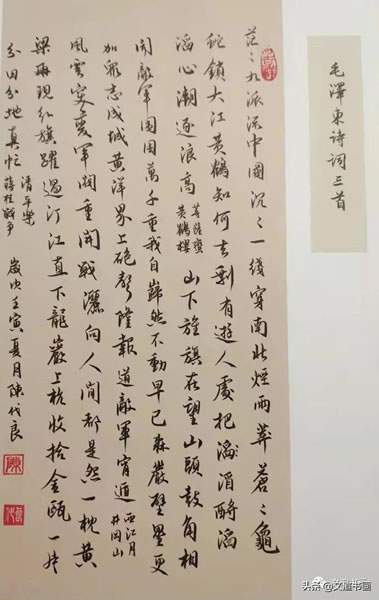 毛澤東詩詞三首
茫々九派流中國沉々一线穿南北煙雨莽蒼々龜
蛇鎖大江黃鶴知何去剩有遊人處把酹滔
滔心潮逐浪高
菩薩蠻
黃鶴樓
山下旌旗在望山頭鼓角相
聞敵軍圍困萬千重我自巋然不動早已森嚴壁壘更
加眾志成城黃洋界上砲聲隆報道敵軍宵遁
西江月
井岡山
風雲突變軍閥重開戰灑向人間都是怨一枕黃
梁再現紅旗躍過汀江直下龍巖上杭收拾金甌一片
分田分地真忙
清平樂
蔣桂戰爭
歲次壬寅夏月陳代良
头条 @文道书画